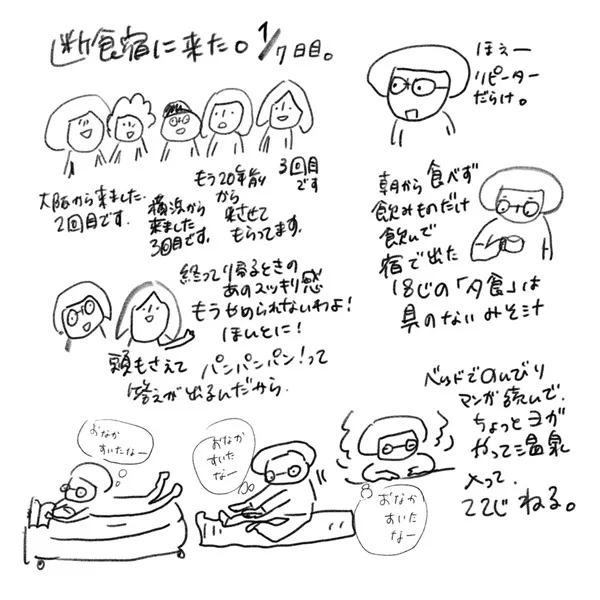 断食宿に来た。1/7日目。
大阪から来ました。
2回目です。
横浜から
来ました
3回目です。
もう20年前
から
来させて
もらってます。
3回目
です
ほぇー
リピーター
だらけ。
終わって帰るときの
あのスッキリ感
もうやめられないわよ!
ほんとに!
頭もさえて パンパンパン!って
答えが出るんだから
朝から食べず
飲みものだけ
飲んで
宿で出た
18じの「夕食」は
具のないみそ汁
ベッドでのんびり
マンガ読んで、
ちょっとヨガ
やって温泉
入って、
22じ ねる。
おなか
すいたなー
おなか
すいた
なー
おなか
すいた
なー